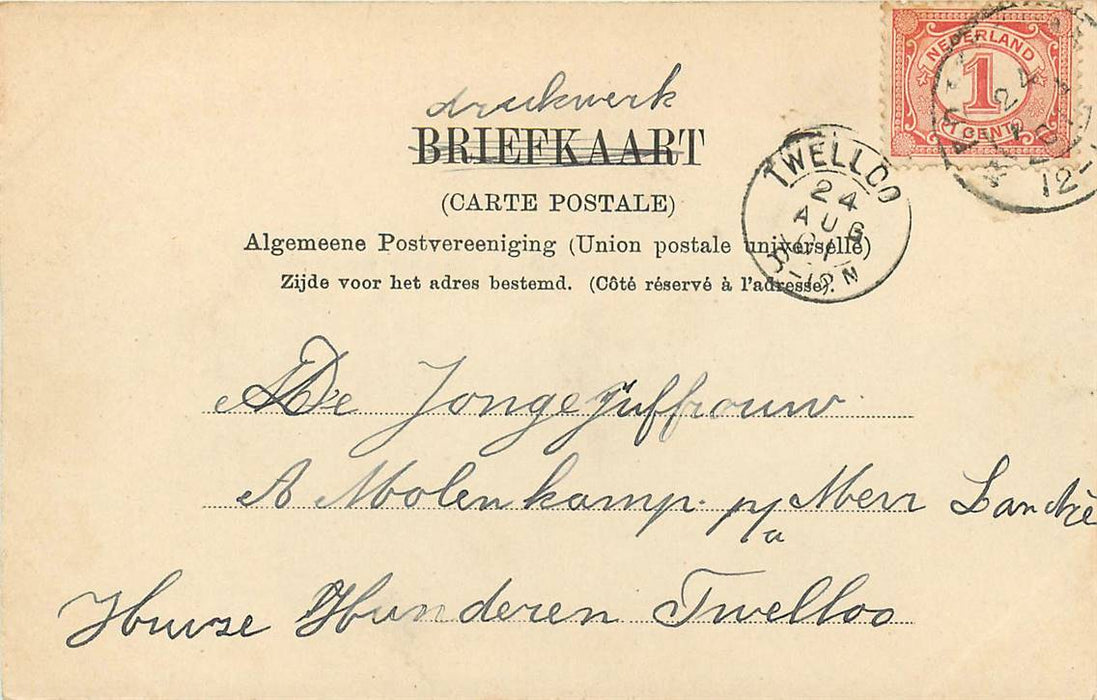 drukwerk
BRIEFKAART
(CARTE POSTALE)
Algemeene Postvereeniging (Union postale universelle)
Zijde voor het adres bestemd. (Côté réservé à l'adresse).
NEDERLAND
1
1 CENT
24
12-1
TWELLOO
24
AUG
01
De Jongejuffrouw
A Molenkamp p/a Merr Landré
Huize Hunderen Twelloo